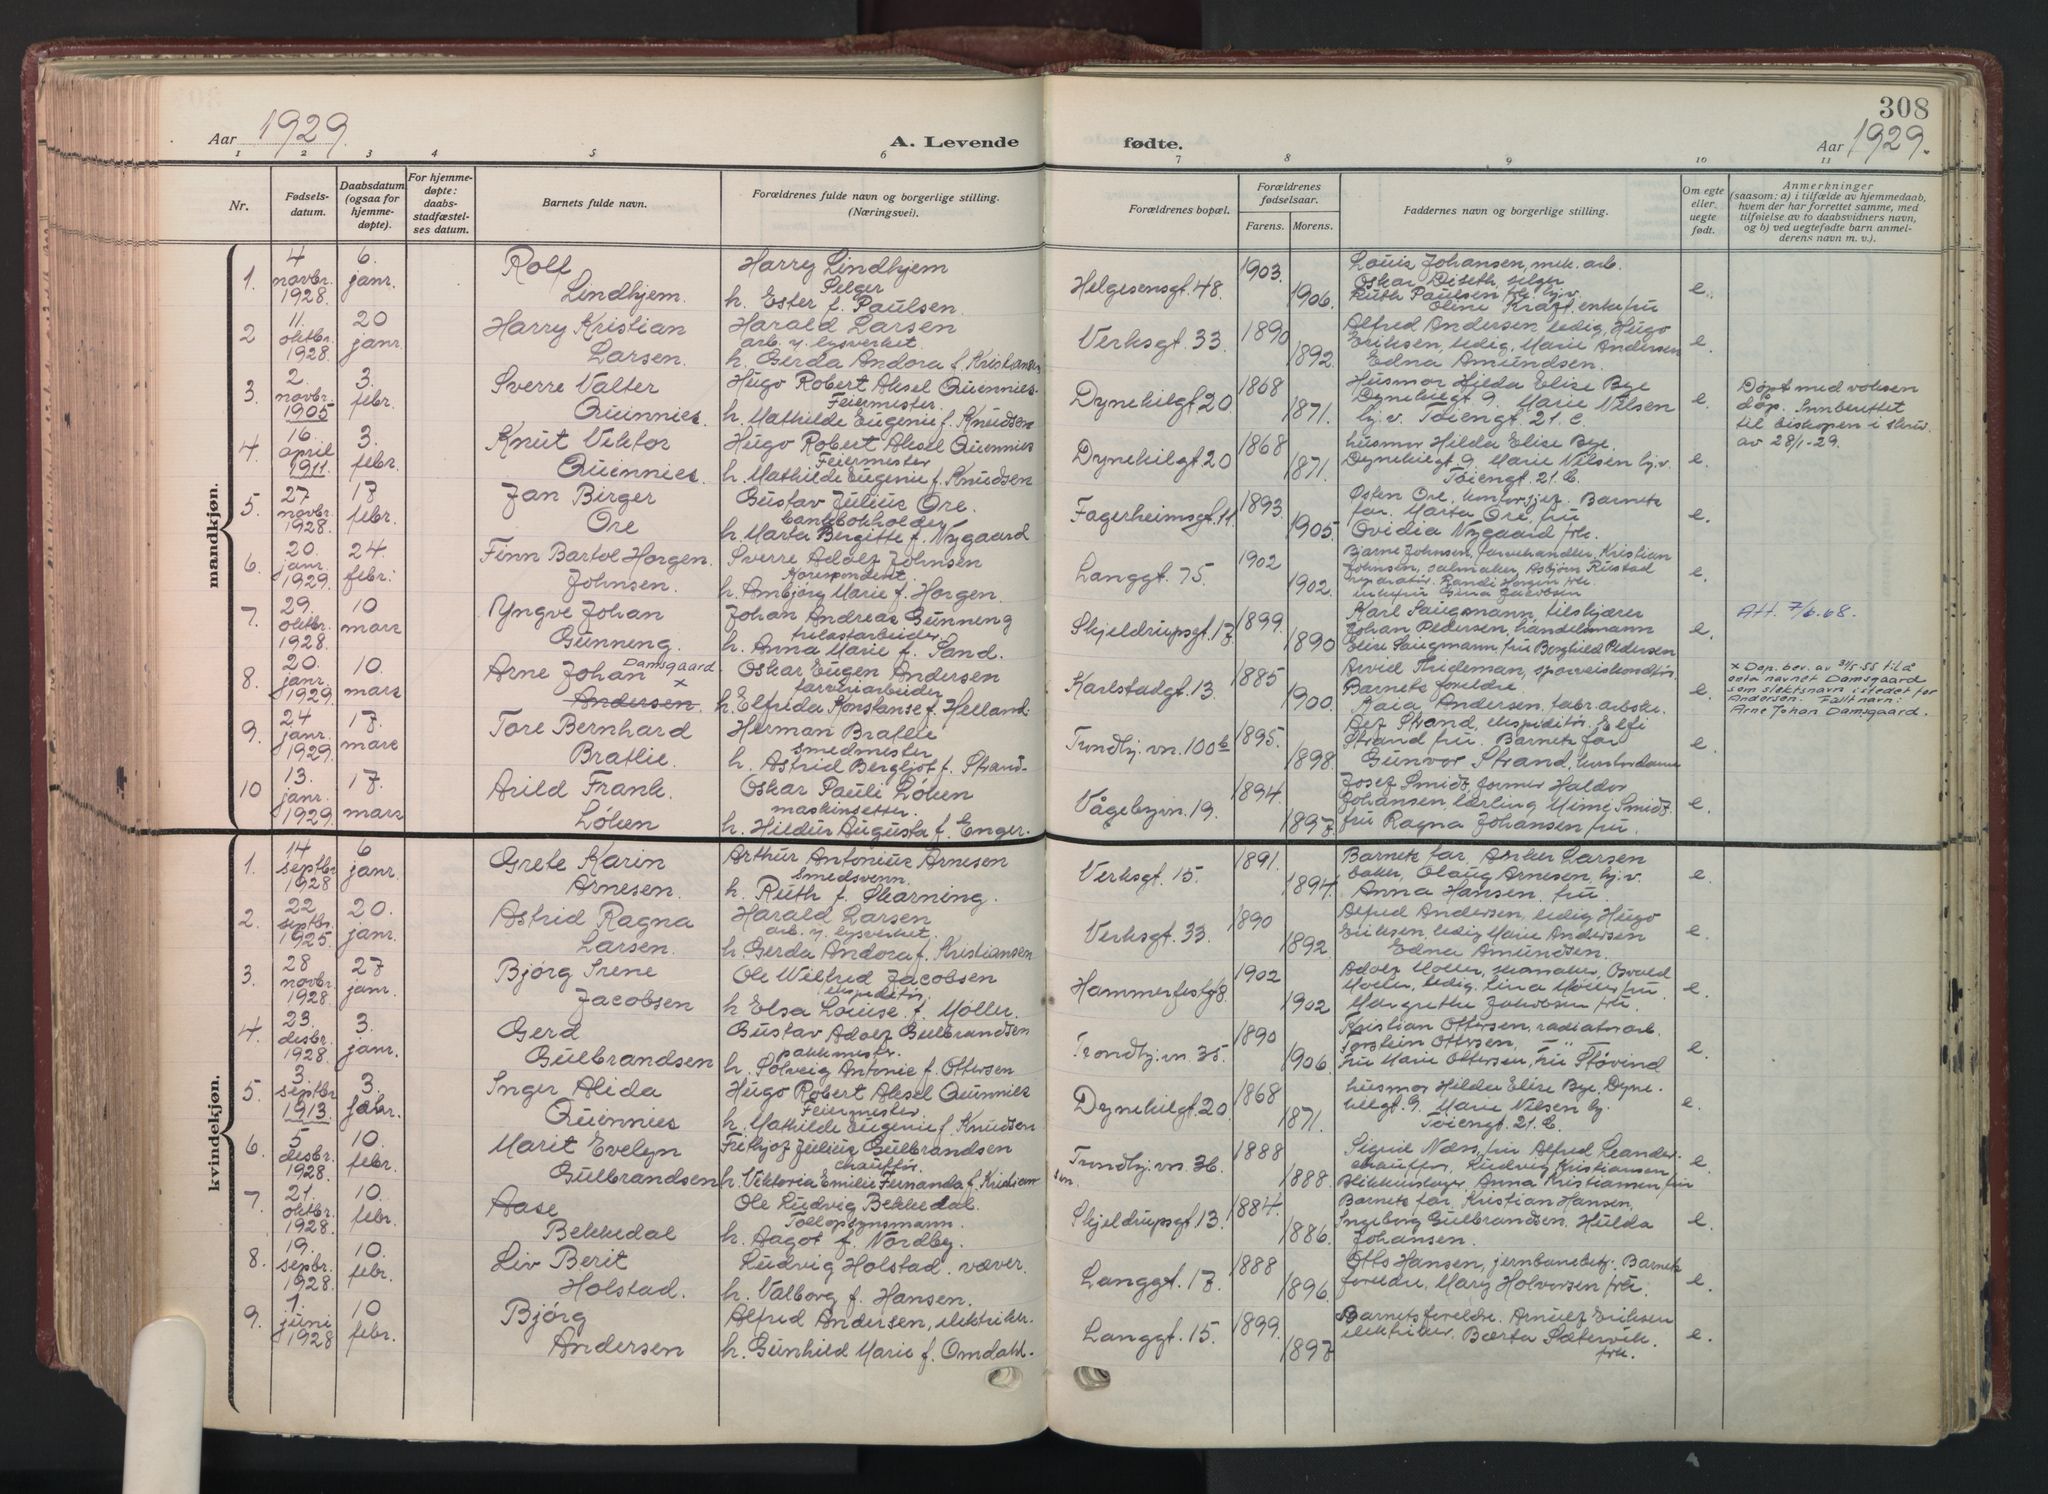 308
Aar 1929.
A. Levende fødte.
Aar 1929.
1 2 3 4 5 6 7 8 9 10 11
Nr.
Fødsels-
datum.
Daabsdatum
(ogsaa for
hjemme-
døpte).
For hjemme-
døpte:
daabs-
stadfæstel-
ses datum.
Barnets fulde navn.
Forældrenes fulde navn og borgerlige stilling.
(Næringsvei).
Forældrenes bopæl.
Forældrenes
fødselsaar.
Farens. Morens.
Faddernes navn og borgerlige stilling.
Om egte
eller
uegte
født.
Anmerkninger
(saasom: a) i tilfælde av hjemmedaab,
hvem der har forrettet samme, med
tilføielse av to daabsvidners navn,
og b) ved uegtefødte barn anmel-
derens navn m. v.).
mandkjøn.
1. 4 novbr. 1928. 6. janr.
Rolf Lindhjem.
Harry Lindhjem
Selger
h. Ester f. Paulsen.
Helgesensgt. 48. 1903. 1906.
Louis Johansen, mek. arb.
Oskar Diseth, selger
Ruth Paulsen frk. hj.v.
Oline Kraft enkefru
e.
2 11. oktbr. 1928. 20 janr.
Harry Kristian Larsen.
Harald Larsen
arb. v. lysverket
h. Gerda Andora f. Kristiansen
Verksgt. 33. 1890 1892.
Alfred Andersen, ledig, Hugo
Eriksen, ledig, Marie Andersen
Edna Amundsen.
e.
3. 2. novbr. 1905 3. febr.
Sverre Valter Quennies.
Hugo Robert Aksel Quennies.
Feiermester.
h. Mathilde Eugenie f. Knudsen
Dynekilgt 20. 1868 1871.
Husmor Hilda Elise Bye
Dynekilgt 9. Marie Nilsen
hj.v. Tøiengt. 21. c.
e.
Døpt med voksen
dåp. Innberettet
til biskopen i skriv.
av 28/1-29.
4. 16. april 1911. 3. febr.
Knut Viktor Quennies.
Hugo Robert Aksel Quennies
Feiermester
h. Mathilde Eugenie f. Knudsen
Dynekilgt 20 1868 1871.
husmor Hilda Elise Bye.
Dynekilgt. 9 Marie Nilsen hj.v.
Tøiengt. 21. C.
e.
5. 27 novbr. 1928. 17 febr.
Jan Birger Ore
Gustav Julius Ore.
bankbokholder
h. Marta Bergitte f. Nygaard
Fagerheimsgt. 11. 1893. 1905.
Østen Ore, kontorsjef. Barnets
far. Marta Ore, fru
Ovidia Nygaard frk.
e.
6. 20. janr. 1929. 24. febr.
Finn Bartol Horgen Johnsen.
Sverre Adolf Johnsen
Korrespondent
h. Ambjørg Marie f. Horgen.
Langgt. 75. 1902 1902.
Bjarne Johnsen, farvehandler, Kristian
Johnsen, salmaker, Asbjørn Rustad
reparatør. Randi Horgen frk.
enkefru Gina Jacobsen
e.
7. 29. oktbr. 1928. 10 mars
Yngve Johan Gunneng.
Johan Andreas Gunneng
trelastarbeider.
h. Anna Marie f. Sand.
Skjeldrupsgt. 17 1899. 1890
Karl Saugmann, tilskjærer
Johan Pedersen, handelsmann
Elise Saugmann, fru Borghild Pedersen
e.
Att. 7/6.68.
8. 20. janr. 1929. 10. mars
Arne Johan Damsgaard x
Andersen.
Oskar Eugen Andersen
farveriarbeider
h. Elfrida Konstanse f. Helland.
Karlstadgt. 13. 1885 1900.
Arvid Thideman, sporveiskondtr.
Barnets foreldre.
Kaia Andersen, fabr. arbske.
e.
x Dep. bev. av 31/5 55 til å
anta navnet Damsgaard
som slektsnavn i stedet for
Andersen. Fullt navn:
Arne Johan Damsgaard.
9. 24 janr. 1929 17. mars
Tore Bernhard Bratlie.
Herman Bratlie
Smedmester
h. Astrid Bergljot f. Strand.
Trondhj. vn. 100 b 1895. 1898.
Strand, ekspeditør, Elfi
Strand fru. Barnets far
Gunvor Strand, kontordame
e.
10 13. janr. 1929. 17. mars
Arild Frank Løken
Oskar Pauli Løken
maskinsetter.
h. Hildur Augusta f. Enger.
Vågebyvn. 19. 1894. 1897.
Josef Smidt, former Haldor
Johansen, lærling, Mimi Smidt.
fru Ragna Johansen fru.
e.
kvindekjøn.
1. 14 septbr 1928 6 janr.
Grete Karin Arnesen.
Arthur Antonius Arnesen
Smedsvenn.
h. Ruth f. Skarning.
Verksgt. 15. 1891. 1894.
Barnets far, Asker Larsen
baker, Olaug Arnesen, hj.v.
Anna Hansen fru.
e.
2. 22 septbr. 1925. 20. janr.
Astrid Ragna Larsen.
Harald Larsen
arb. v. lysverket.
h. Gerda Andora f. Kristiansen
Verksgt. 33. 1890 1892.
Alfred Andersen, ledig Hugo
Eriksen, ledig Marie Andersen
Edna Amundsen.
e.
3. 28 novbr. 1928. 27 janr.
Bjørg Irene Jacobsen
Ole Wilfred Jacobsen
ekspeditør.
h Elsa Louise f. Møller.
Hammerfestg. 8. 1902 1902
Adolf Møller, Osvald
Møller, ledig. Lina Møller fru.
Margrethe Jakobsen fru
e.
4. 23. desbr. 1928. 3. janr.
Gerd Gulbrandsen
Gustav Adolf Gulbrandsen
pakkmester.
h. Solveig Antonie f. Ottersen
Trondhj. vn. 35. 1890 1906.
Kristian Ottersen, radiatorarb.
Torstein Ottersen, — " —
fru Marie Ottersen, fru Støvind
e.
5. 3 septbr. 1913. 3. febr.
Inger Alida Quennies
Hugo Robert Aksel Quennies
Feiermester.
h. Mathilde Eugenie f. Knudsen
Dynekilgt. 20 1868 1871.
husmor Hilda Elise Bye, Dyne-
kilgt. 9. Marie Nilsen hj.
Tøiengt. 21. C.
e.
6. 5 desbr. 1928. 10. febr.
Marit Evelyn Gulbrandsen
Frithjof Julius Gulbrandsen
chauffør.
h. Viktoria Emilie Fernanda f. Kristian
sen.
Trondhj. vn. 36. 1888 1888.
Signe Næss, fru Alfred Leander
chauffør, Ludvig Kristiansen
Blikkenslager, Anna Kristiansen fru
e.
7. 21. oktbr. 1928 10. febr.
Aase Bekkedal
Ole Ludvig Bekkedal.
Tollopsynsmann.
h. Aagot f. Nordby.
Skjeldrupsgt. 13. 1884. 1886.
Barnets far, Kristian Hansen,
Ingeborg Gulbrandsen, Hulda
Johansen.
e.
8. 19. sepbr. 1928 10. febr.
Liv Berit Holstad.
Ludvig Holstad. væver.
h. Valborg f. Hansen.
Langgt. 17. 1888 1896.
Otto Hansen, jernbanebetj. Barnets
foreldre, Mary Halvorsen frk.
e.
9. 1. juni 1928 10 febr.
Bjørg Andersen
Alfred Andersen, elektriker.
h. Gunhild Marie f. Omdahl.
Langgt. 15. 1899. 1897
Barnets forelde. Arnulf Eriksen
elektriker. Bærta Sætervik.
frk.
e.